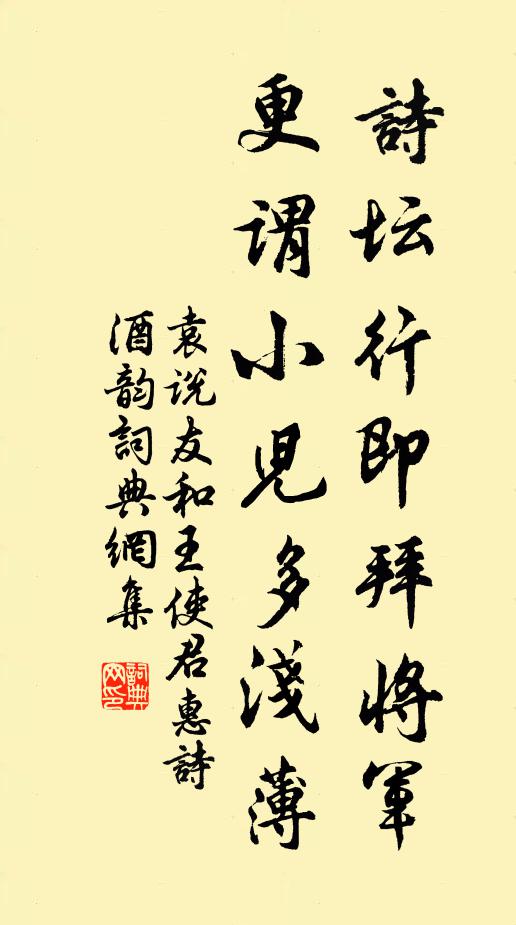 詩坛行即拜将軍
更谓小児多淺薄
袁说友和王使君惠詩
酒韵詞典網集
詞典
网印